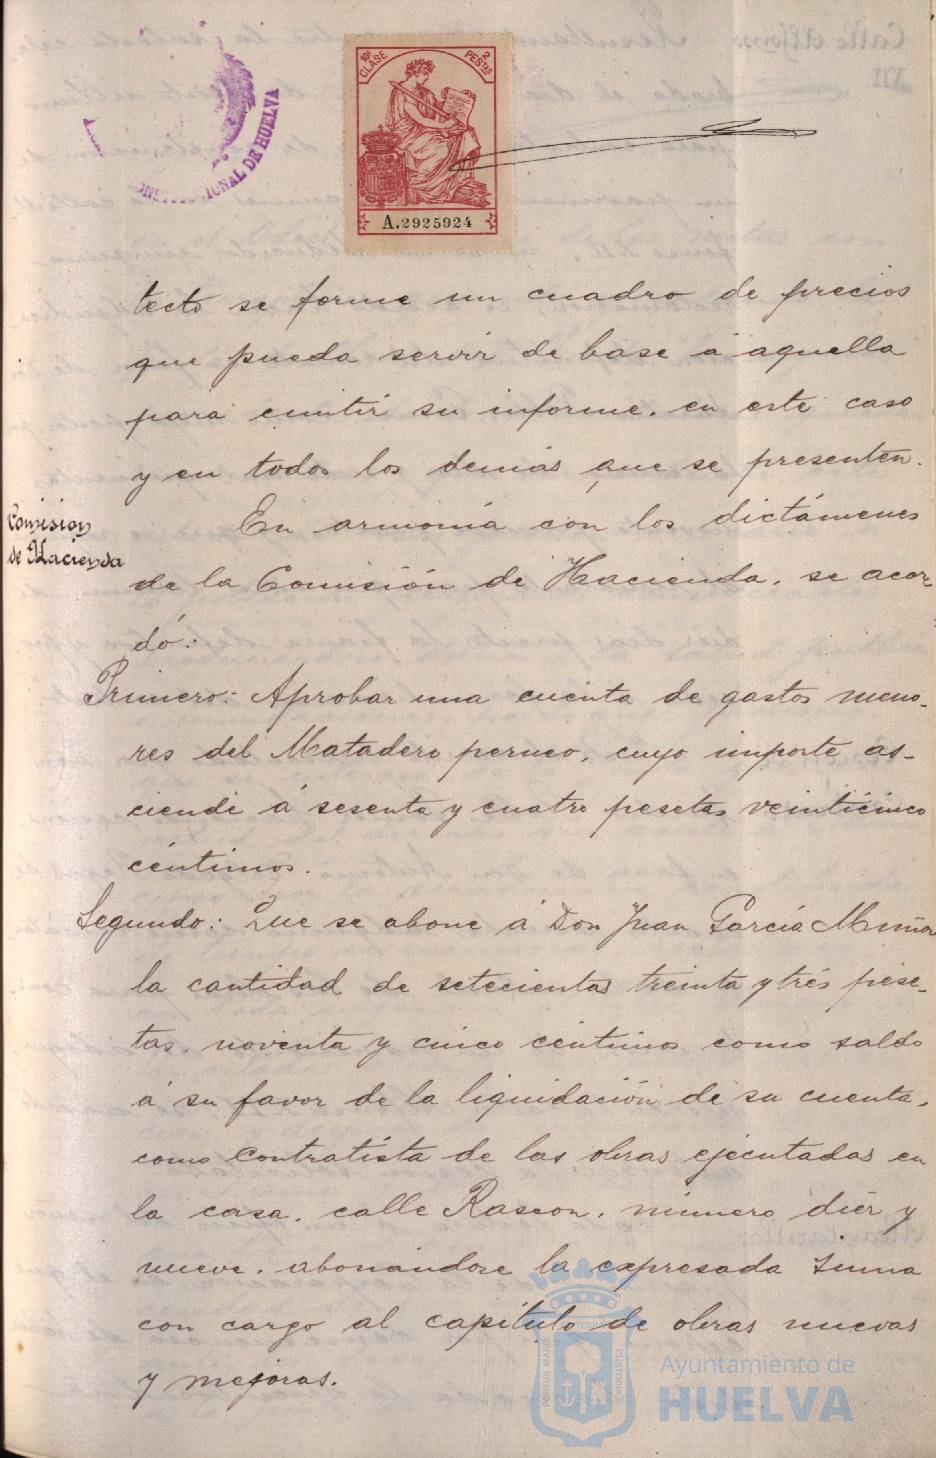 CONSTITUCIONAL DE HUELVA
10ª CLASE
2 PESTAS
A.2925924
tecto se forme un cuadro de precios
que pueda servir de base á aquella
para emitir su informe, en este caso
y en todos los demás que se presenten.
Comisión
de Hacienda
En armonía con los dictámenes
de la Comisión de Hacienda, se acor-
dó:
Primero: Aprobar una cuenta de gastos meno-
res del Matadero perneo, cuyo importe as-
ciende á sesenta y cuatro pesetas veinticinco
céntimos.
Segundo: Que se abone á Don Juan García Muñoz
la cantidad de setecientas treinta y trés pese-
tas, noventa y cinco céntimos como saldo
á su favor de la liquidación de su cuenta,
como contratista de las obras ejecutadas en
la casa, calle Rascon, número diér y
nueve, abonándose la expresada suma
con cargo al capítulo de obras nuevas
y mejoras.
PORTUS MARIS
ET TERRAE
CUSTODIA
Ayuntamiento de
HUELVA